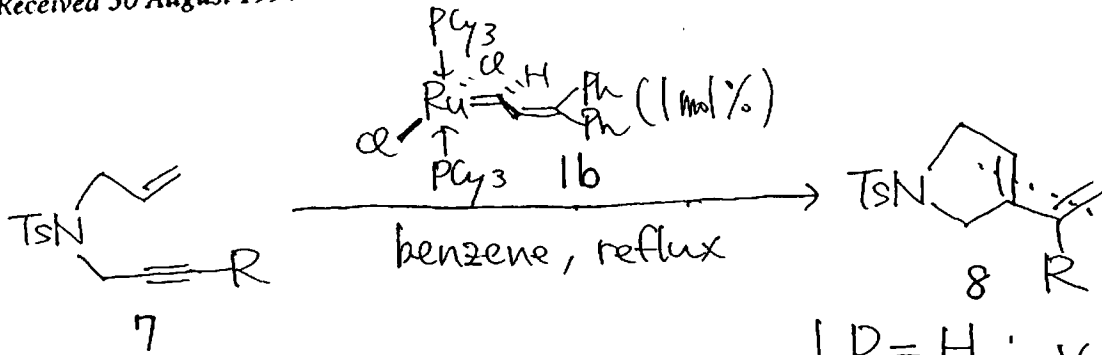 Received 30 August 199
PCy3
Cl H
Ru Ph (1 mol%)
Cl Ph
PCy3 1b
TsN
R
7
benzene, reflux
TsN
8 R
R = H :